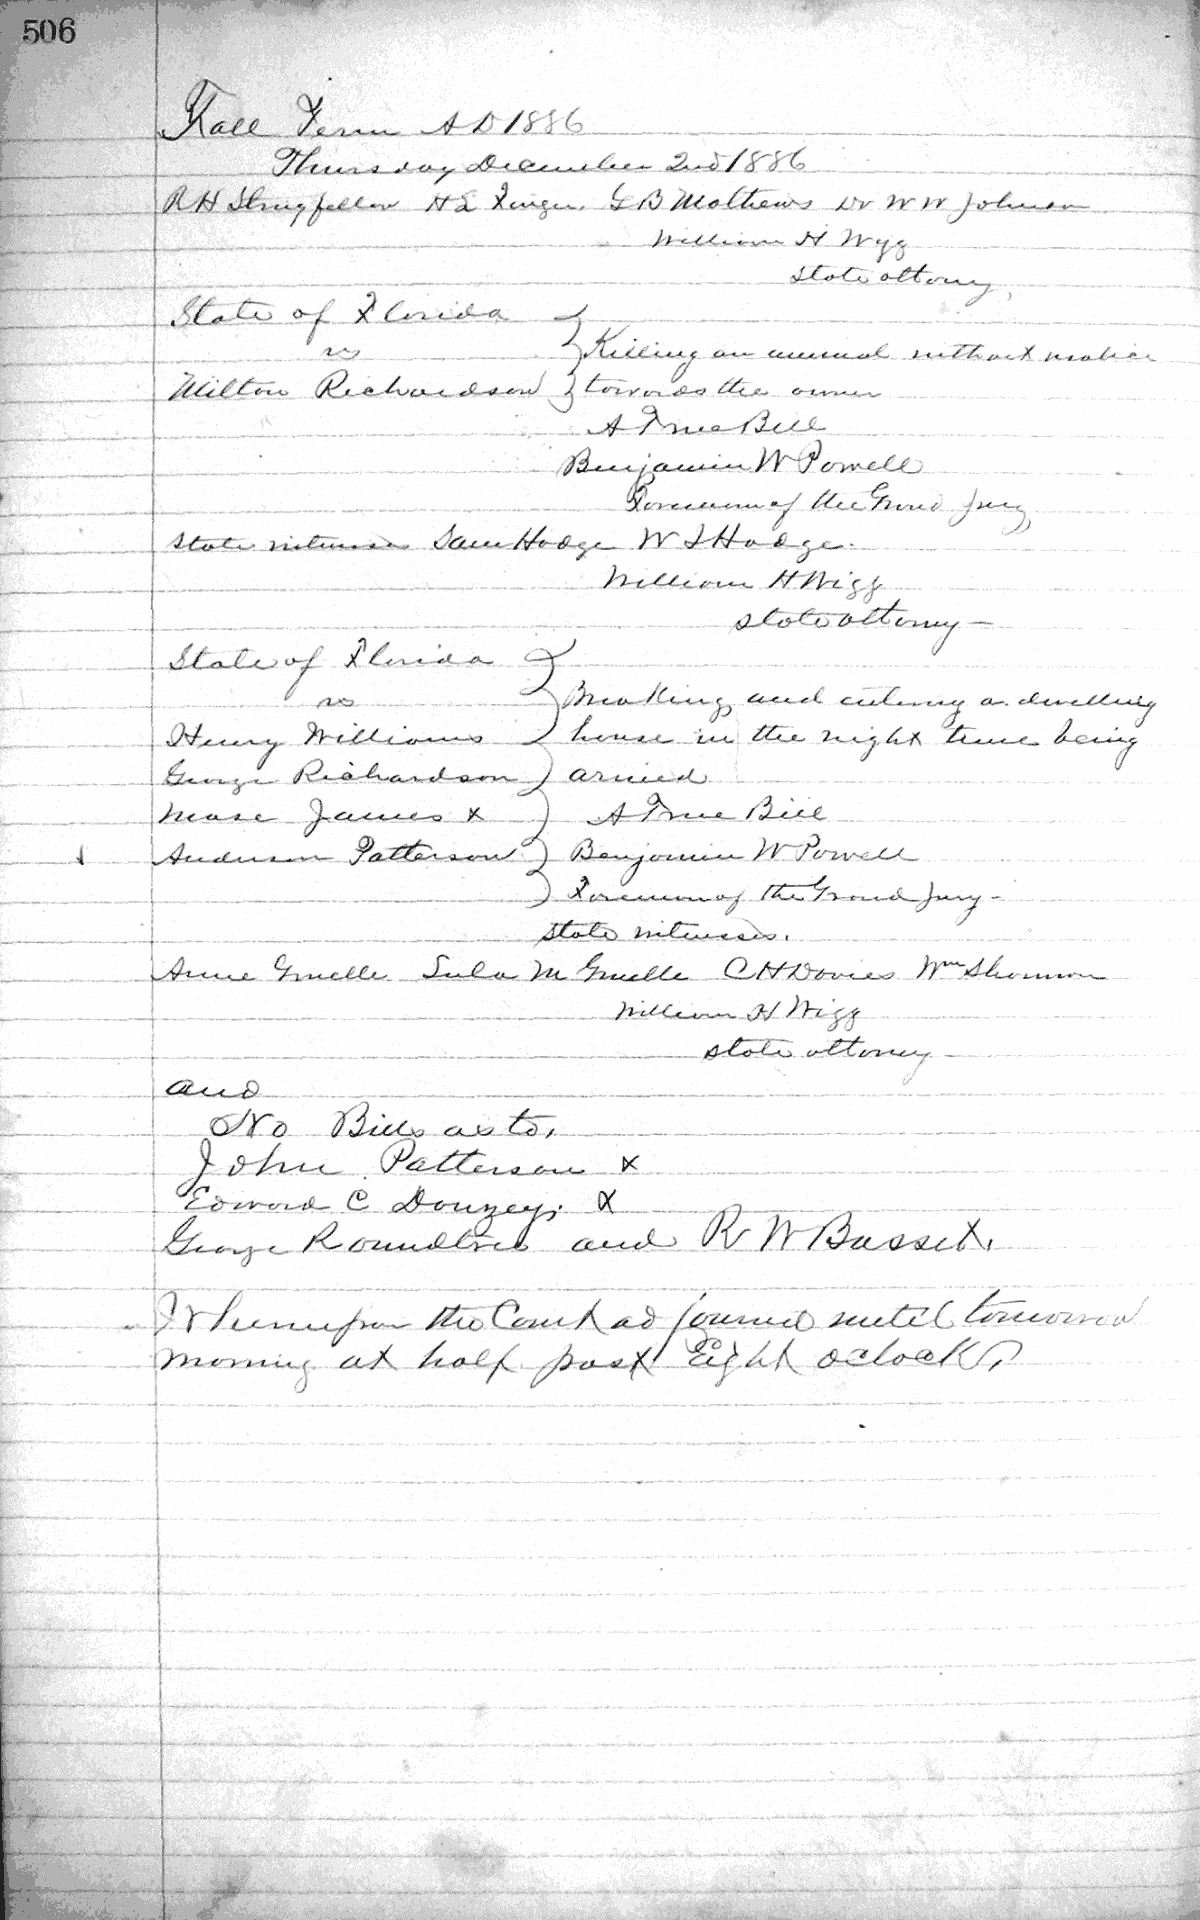 506
Fall Term A D 1886
Thursday December 2nd 1886
R H Stringfellow H L G B Mathews Dr W W Johnson
William H Wigg
State attorny
State of Florida
vs Killing an animal without malice
Milton Richardson towards the owner
A True Bill
Benjamin W Powell
Foreman of the Grand Jury
State witnesses Sam Hodge W S Hodge
William H Wigg
State attorny
State of Florida
vs Breaking and entering a dwelling
Henry Williams house in the night time being
George Richardson armed
Mose James x A True Bill
Anderson Patterson Benjamin W Powell
Foreman of the Grand Jury
State witnesses.
Annie Gruelle Lula M Gruelle C H Davies Wm Shannon
William H Wigg
State attorney
and
No Bills as to.
John Patterson x
Edward C Douzey. x
George Roundtree and R W Basset.
Whereupon the Court adjourned until tomorrow
morning at half past Eight oclock